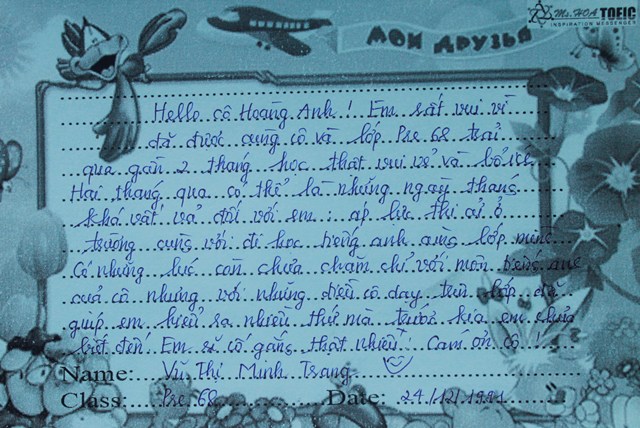 Ms. HOA TOEIC
INSPIRATION MESSENGER
МОИ ДРУЗЬЯ
Hello cô Hoàng Anh ! Em rất vui vì
đã được cùng cô và lớp Pre 68 trải
qua gần 2 tháng học thật vui vẻ và bổ ích
Hai tháng qua có thể là những ngày tháng
khá vất vả đối với em : áp lực thi cử ở
trường cùng với đi học tiếng anh cùng lớp mình
Có những lúc còn chưa chăm chỉ với môn tiếng anh
của cô nhưng với những điều cô dạy trên lớp đã
giúp em hiểu ra nhiều thứ mà trước kia em chưa
biết đến. Em sẽ cố gắng thật nhiều ! Cảm ơn cô !
Name: Vũ Thị Minh Trang
Class: Pre 68 Date: 24/12/1994